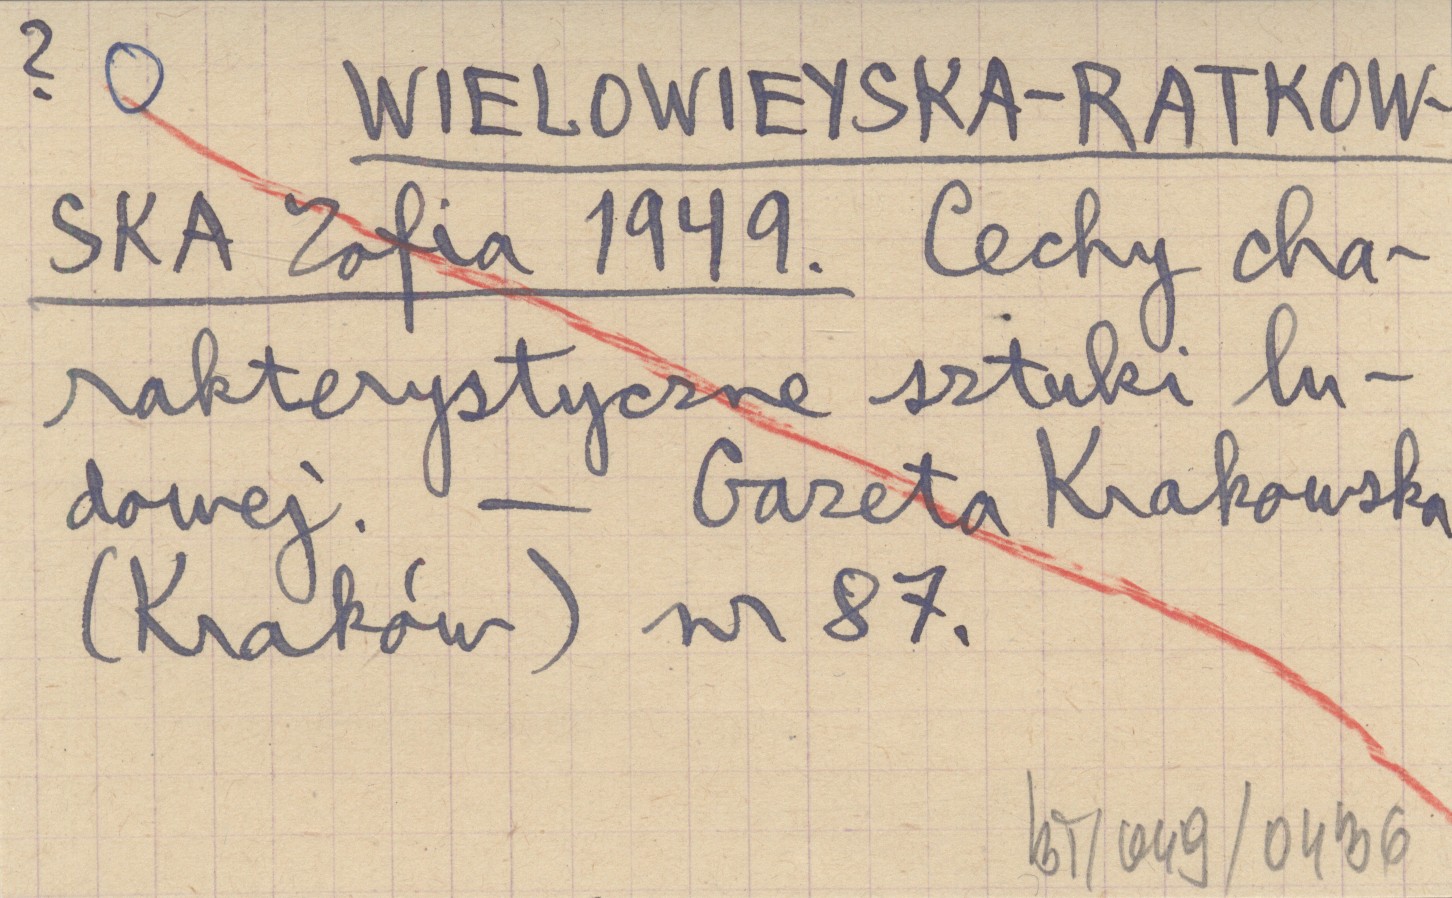 ? O
WIELOWIEYSKA-RATKOW-
SKA Zofia 1949. Cechy cha-
rakterystyczne sztuki lu-
dowej. — Gazeta Krakowska
(Kraków) nr 87.
/049/0436